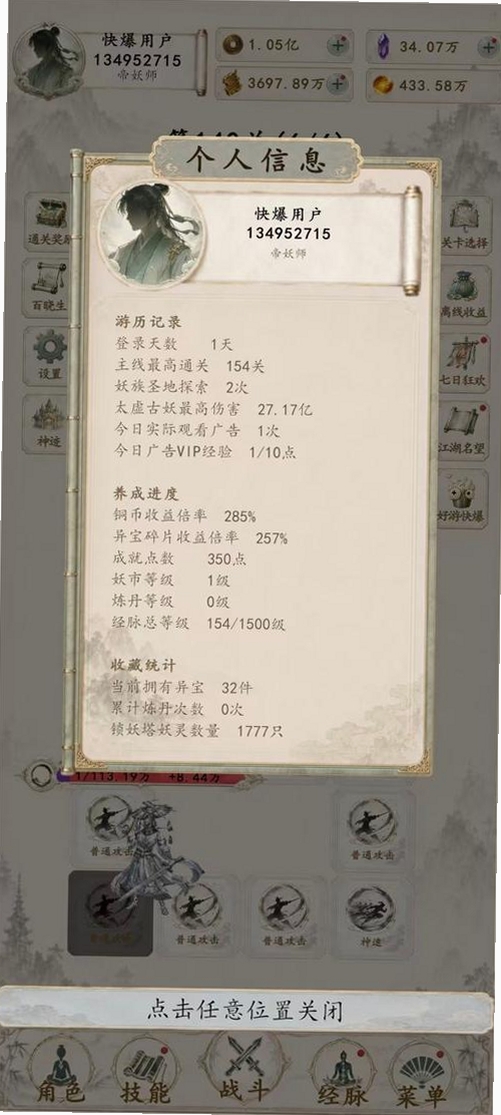 快爆用户
134952715
帝妖师
1.05亿
34.07万
3697.89万
433.58万
个人信息
快爆用户
134952715
帝妖师
通关奖励
百晓生
设置
神速
关卡选择
离线收益
七日狂欢
江湖名望
好游快爆
游历记录
登录天数 1天
主线最高通关 154关
妖族圣地探索 2次
太虚古妖最高伤害 27.17亿
今日实际观看广告 1次
今日广告VIP经验 1/10点
养成进度
铜币收益倍率 285%
异宝碎片收益倍率 257%
成就点数 350点
妖市等级 1级
炼丹等级 0级
经脉总等级 154/1500级
收藏统计
当前拥有异宝 32件
累计炼丹次数 0次
锁妖塔妖灵数量 1777只
+8.44万
普通攻击
普通攻击
普通攻击
普通攻击
神速
点击任意位置关闭
角色
技能
战斗
经脉
菜单